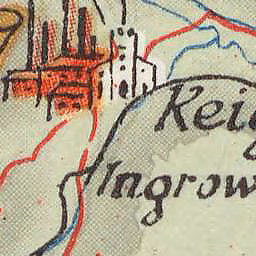 Keig
Ingrow